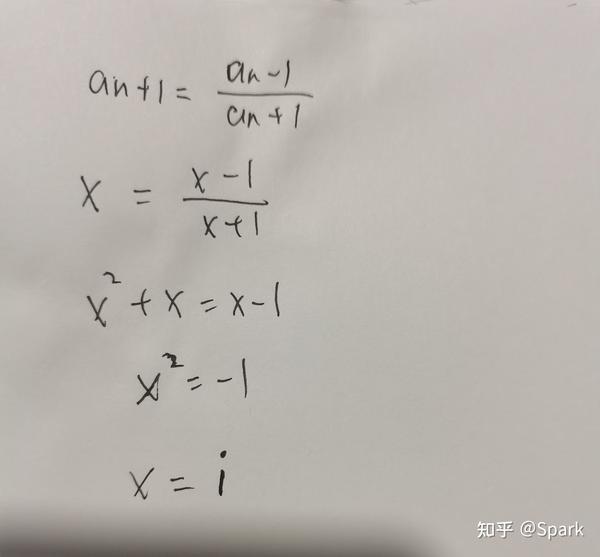 an+1 = an-1/an+1
x = x-1/x+1
x² + x = x-1
x² = -1
x = i
知乎 @Spark